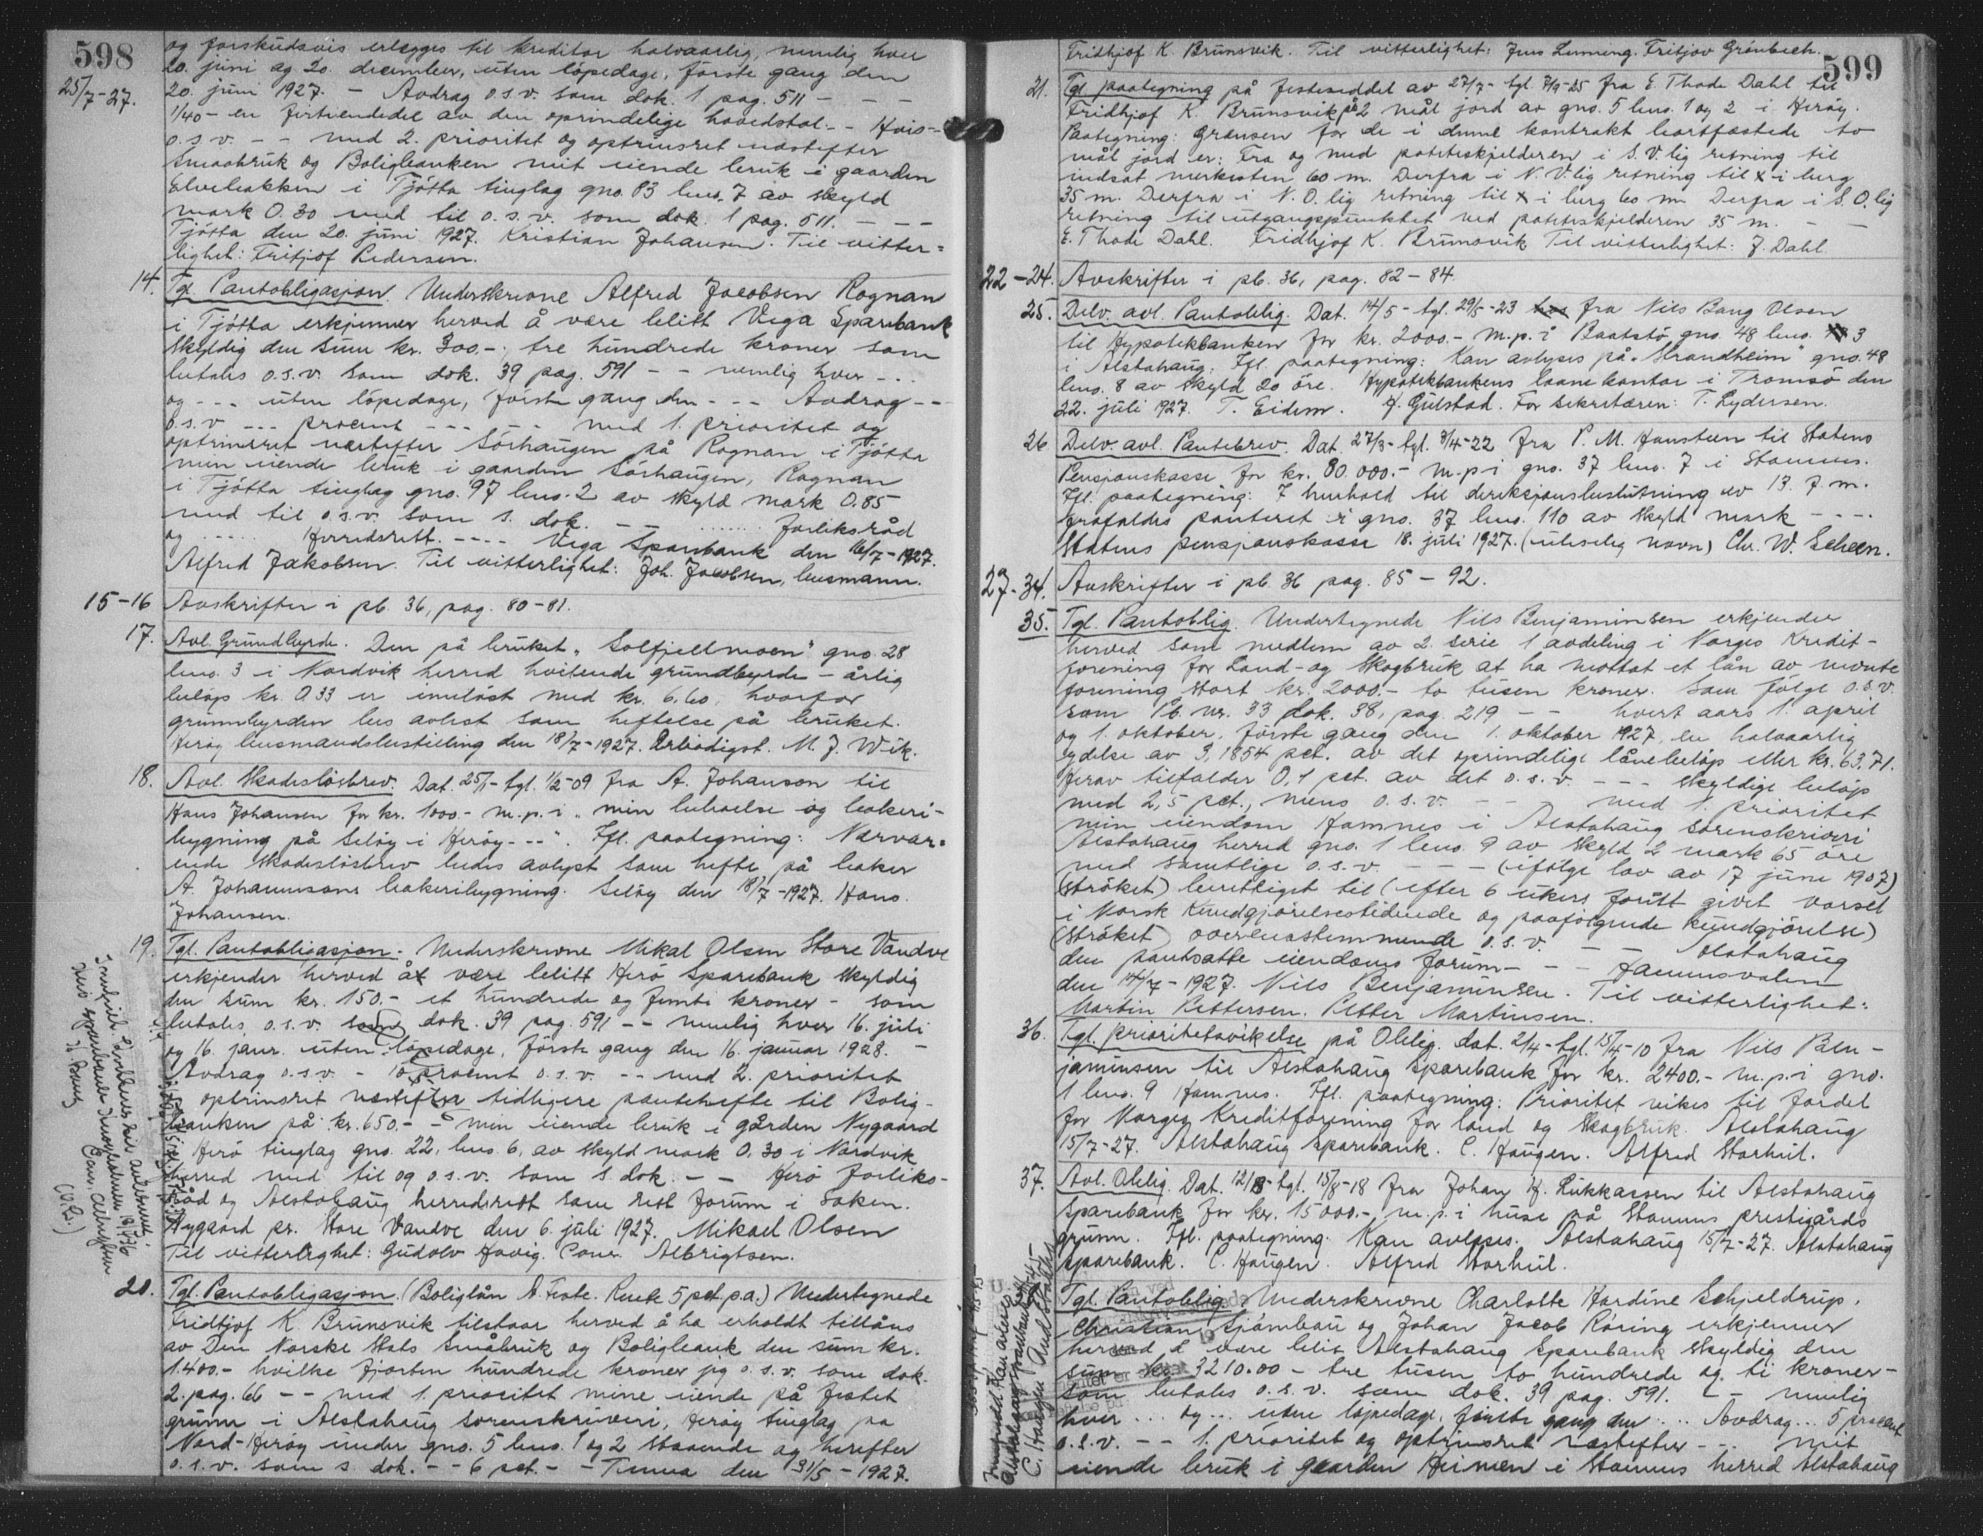 598
25/7-27.
og forskudsvis erlegges til kreditor halvaarlig, nemlig hver
20. juni og 20. december, uten löpedage, förste gang den
20. juni 1927. - Avdrag o.s.v. som dok. 1 pag. 511 - - -
1/40 - en firtiendedel av den oprindelige hovedstol - - Hvis -
o.s.v. - - med 2. prioritet og optrinsret næstefter
Smaabruk og Boligbanken mit eiende bruk i gaarden
Elvebakken i Tjötta tinglag gno. 83 bno. 7 av skyld
mark 0.30 med til o.s.v. som dok. 1 pag. 511. - - -
Tjötta den 20. juni 1927. Kristian Johansen. Til vitter=
lighet: Fritjof Pedersen.
14. Tgl. Pantobligasjon. Underskrevne Alfred Jacobsen Rognan
i Tjötta erkjenner herved å være blitt Vega Sparebank
skyldig den sum kr. 300.-, tre hundrede kroner som
betales o.s.v. som dok. 39 pag. 591 - - nemlig hver - . .
og - - - uten löpedage, förste gang den - - - Avdrag - -
o.s.v. - - - procent - - - - - med 1. prioritet og
optrinsret næstefter Sörhaugen på Rognan i Tjötta
min eiende bruk i gaarden Sörhaugen, Rognan
i Tjötta tinglag gno. 97 bno. 2 av skyld mark 0.85
med til o.s.v. som s. dok. - - ...... forliksråd
og ..... Herredsrett. - - - - Vega Sparebank den 16/7-1927.
Alfred Jakobsen. Til vitterlighet: Joh. Jacobsen, lensmann.
15-16 Avskrifter i pb. 36, pag. 80-81.
17. Avl. Grundbyrde. Den på bruket "Solfjellmoen" gno. 28
bno. 3 i Nordvik herred hvilende grundbyrde - årlig
beløp kr. 0.33 er innløst med kr. 6.60, hvorfor
grunnbyrden bes avlest som heftelse på bruket.
Heröy lensmandsbestilling den 18/7-1927. Ærbödigst. M. J. Wik.
18. Avl. Skadeslösbrev. Dat. 25/1-tgl. 1/2-09 fra A. Johanson til
Hans Johansen for kr. 1000.- m.p.i. "min bebuelse og bakeri-
bygning på Selöy i Heröy - - -". Ifl. paategning: Nærvær=
ende skadeslösbrev bedes avlyst som hefte på baker
A. Johannsons bakeribygning. Selöy den 18/7-1927. Hans
Johansen.
19. Tgl. Pantobligasjon. Underskrevne Mikal Olsen Store Vandve
erkjender herved å være blitt Herö Sparebank skyldig
den sum kr. 150.- et hundrede og femti kroner - som
betales o.s.v. som dok. 39 pag. 591 - - nemlig hver 16. juli
og 16. janr. uten löpedage, förste gang den 16. januar 1928. -
Avdrag o.s.v. - 10 procent o.s.v. - - med 2. prioritet
optrinsret næstefter tidligere pantehefte til Bolig-
banken på kr. 650.- - min eiende bruk i gården Nygaard
Herö tinglag gno. 22, bno. 6, av skyld mark 0.30 i Nordvik
herred med til og o.s.v. som s. dok. - - Herö forliks-
råd og Alstahaug herredsrett som rett forum i saken.
Nygaard pr. Store Vandve den 6. juli 1927. Mikael Olsen
Til vitterlighet: Gudolv Havig. Conr. Albrigtsen.
20. Tgl. Pantobligasjon. (Boliglån A. Rente 5 pct. p.a.) Undertegnede
Fridtjof K. Brunsvik tilstaar herved å ha erholdt tillåns
av Den Norske Stats Småbruk og Boligbank den sum kr.
1.400.- hvilke fjorten hundrede kroner jeg o.s.v. som dok.
2. pag. 66 - - med 1. prioritet mine eiende på festet
grunn i Alstahaug sorenskriveri, Heröy tinglag på
Nord-Heröy under gno. 5 bno. 1 og 2 staaende og herefter
o.s.v. som s. dok. - - 6 pct. - - Tenna den 31/5-1927.
599
Fridhjof K. Brunsvik. Til vitterlighet: Jens Fritjov Grönbech.
21. Tgl. paategning på festeseddel av 27/7-tgl. 7/9-25 fra E Thode Dahl til
Fridhjof K. Brunsvik på 2 mål jord av gno. 5 bno. 1 og 2 i Heröy.
Paategning: Grensen for de i denne kontrakt bortfæstede to
mål jord er: Fra og med poteteskjelderen i S.V.lig retning til
indsat merkesten 60 m. Derfra i N.V.lig retning til x i berg
35 m. Derfra i N.O.lig retning til x i berg 60 m. Derfra i S.O.lig
retning til utgangspunktet ved poteteskjelderen 35 m. - -
E. Thode Dahl. Fridhjof K. Brunsvik Til vitterlighet: J. Dahl.
22-24. Avskrifter i pb. 36, pag. 82-84.
25. Delv. avl. Pantoblig. Dat. 14/5-tgl. 29/5-23 fra Nils Bang Olsen
til Hypotekbanken for kr. 2000.- m.p.i Baatstö gno. 48 bno. 3
i Alstahaug. Ifl. paategning: Kan avlyses på "Strandheim" gno. 48
bno. 8 av skyld 20 öre. Hypotekbankens laanekontor i Tromsö den
22. juli 1927. T. Eidem. H. Gulstad. For sekretæren: T. Lydersen.
26 Delv. avl. Pantebrev. Dat. 27/3-tgl. 3/4-22 fra P. M. Hansteen til Statens
Pensjonskasse for kr. 80.000.- m.p.i gno. 37 bno. 7 i Stamnes.
Ifl. paategning: I henhold til direksjonsbeslutning av 13. 7. m.
frafaldes panteret i gno. 37 bno. 110 av skyld mark - - - -
Statens pensjonskasse 18. juli 1927. (uleselig navn) Chr. W. Scheen.
27-34. Avskrifter i pb. 36 pag. 85-92.
35. Tgl. Pantoblig. Undertegnede Nils Benjaminsen erkjender
herved som medlem av 2. serie 1 avdeling i Norges Kredit-
forening for Land- og Skogbruk at ha mottat et lån av nevnte
forening stort kr. 2000.- to tusen kroner. Som fölge o.s.v.
som lb. nr. 33 dok. 38, pag. 219 - - hvert aars 1. april
og 1. oktober, förste gang den 1. oktober 1927, en halvaarlig
ydelse av 3,1854 pct. av det oprindelige lånebelöp eller kr. 63.71.
Herav tilfalder 0,1 pct. av det o.s.v. - - - skyldige belöp
med 2,5 pct., mens o.s.v. - - med 1. prioritet
min eiendom Hamnes i Alstahaug sorenskriveri
Alstahaug herred gno. 1 bno. 9 av skyld 2 mark 65 öre
med samtlige o.s.v. - - - (ifölge lov av 17 juni 1907)
(ströket) berettiget til (efter 6 ukers forutt givet varsel
i Norsk Kundgjörelsestidende og paafölgende kundgjörelse)
(ströket) overensstemmende o.s.v. - - Alstahaug
den pantsatte eiendoms forum - - - Hamnsvalen
den 14/7-1927. Nils Benjaminsen. Til vitterlighet:
Martin Pettersen. Petter Martinsen.
36. Tgl. prioritetsvikelse på Oblig. dat. 2/4-tgl. 15/4-10 fra Nils Ben-
jaminsen til Alstahaug Sparebank for kr. 2400.- m.p.i gno.
1 bno. 9 Hamnes. Ifl. paategning: Prioritet vikes til fordel
for Norges Kreditforening for land og Skogbruk. Alstahaug
15/7-27. Alstahaug sparebank. C. Haugen. Alfred Storhul.
37. Avl. Oblig. Dat. 12/8-tgl. 15/8-18 fra Johan H. Lukkassen til Alstahaug
Sparebank for kr. 15000.- m.p.i huse på Stamnes prestegårds
grunn. Ifl. paategning: Kan avleses. Alstahaug 15/7-27. Alstahaug
sparebank. C. Haugen. Alfred Storhul.
Tgl. Pantoblig. Underskrevne Charlotte Hardine Schjeldrup,
Christian Sjömbau og Johan Jacob Röring erkjenner
herved å være blit Alstahaug Sparebank skyldig den
sum kr. 3210.00 - tre tusen to hundrede og ti kroner -
som betales o.s.v. som dok. 39 pag. 591. - - nemlig
hver ... og ... uten löpedage, förste gang den ... Avdrag ... 5 procent
o.s.v. - - 1. prioritet og optrinsret næstefter - - . mit
eiende bruk i gaarden Heimen i Stamnes herred Alstahaug